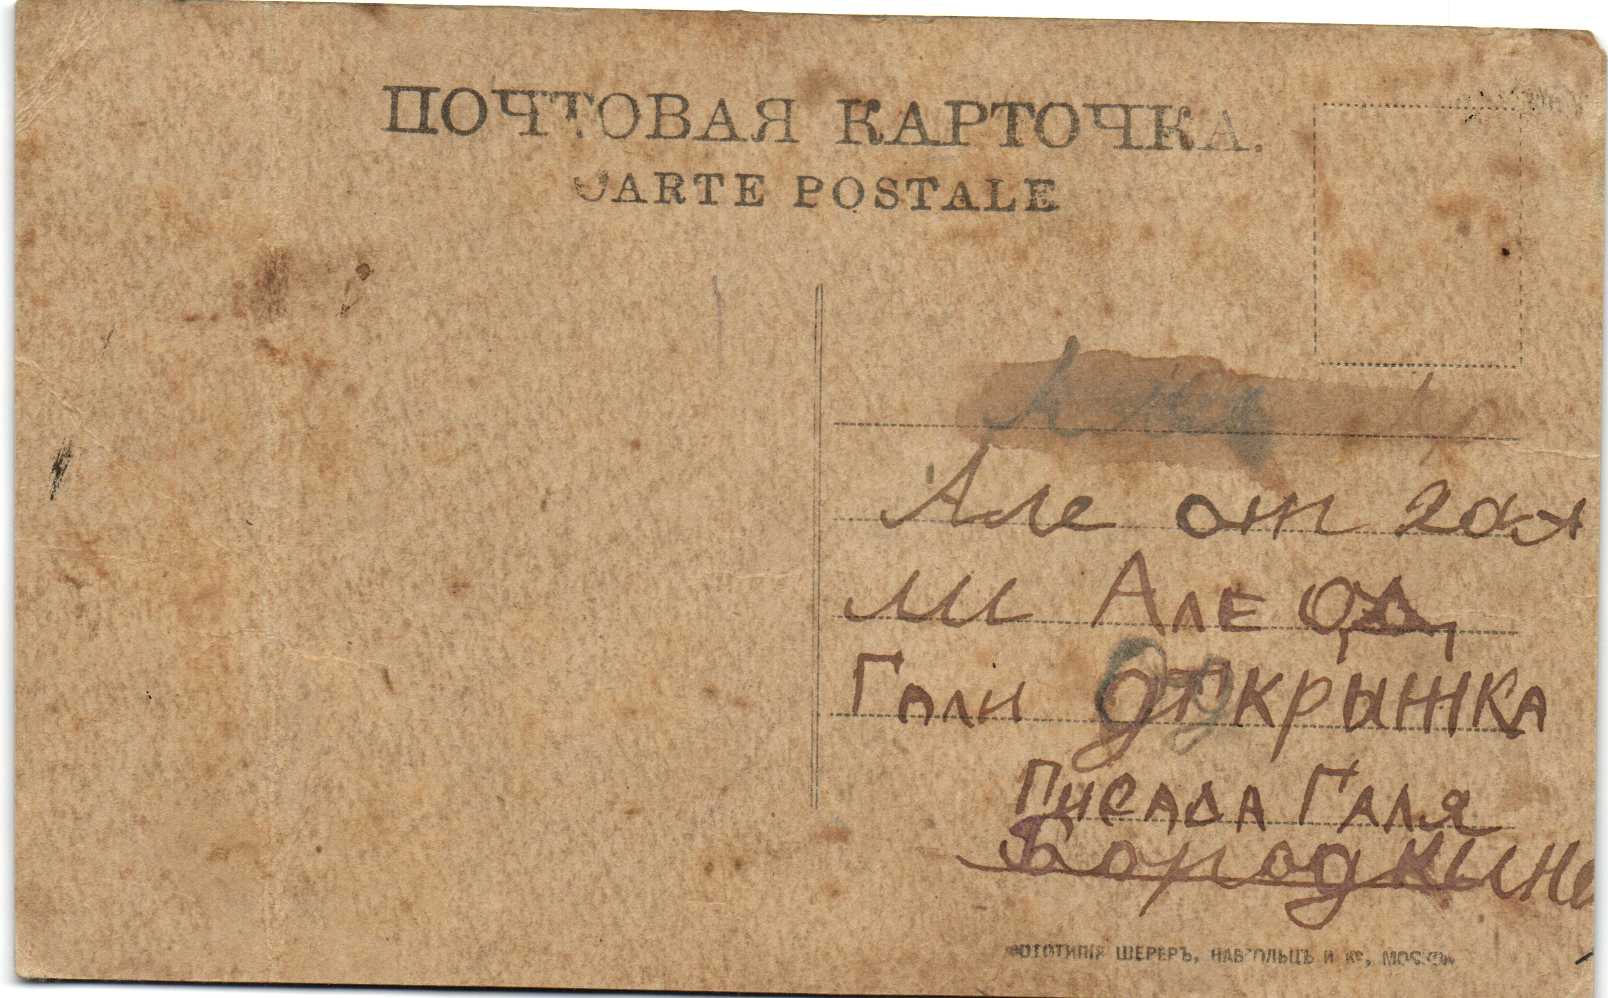 ПОЧТОВАЯ КАРТОЧКА.
CARTE POSTALE
Але от гая
ли Але од
Гали откржка
Писала Галя
Бородкина
ФОТОТИПІЯ ШЕРЕРЪ, НАБГОЛЬЦЪ И Ко, МОСКВА